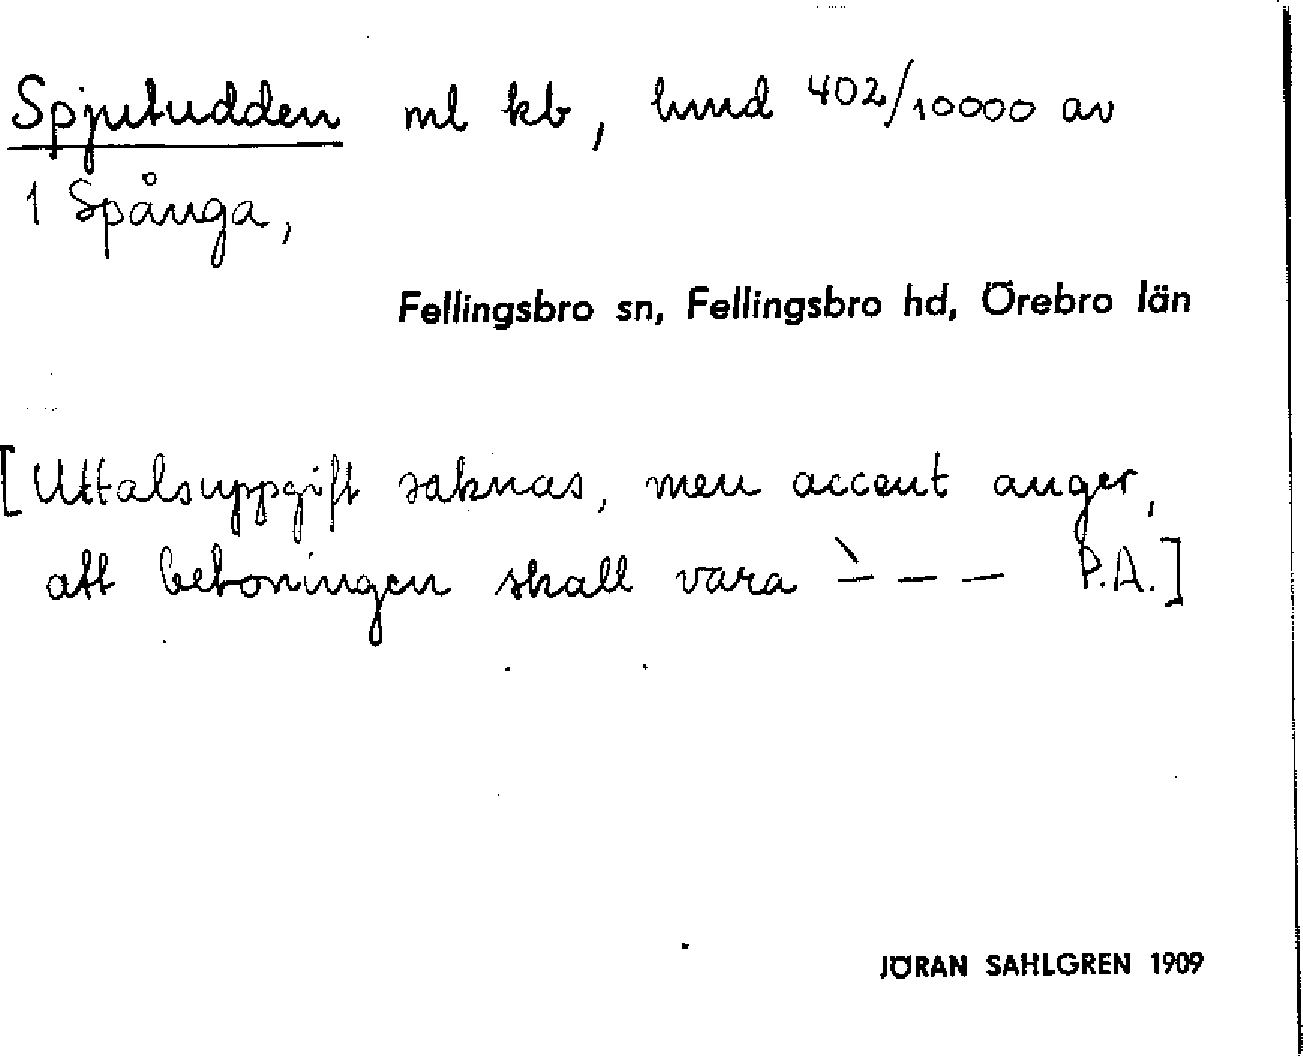 Spjutudden ml kb, lmd 402/10000 av
1 Spånga,
Fellingsbro sn, Fellingsbro hd, Örebro län
[Uttalsuppgift saknas, men accent anger,
att betoningen skall vara ̀– – – P.A.]
JÖRAN SAHLGREN 1909